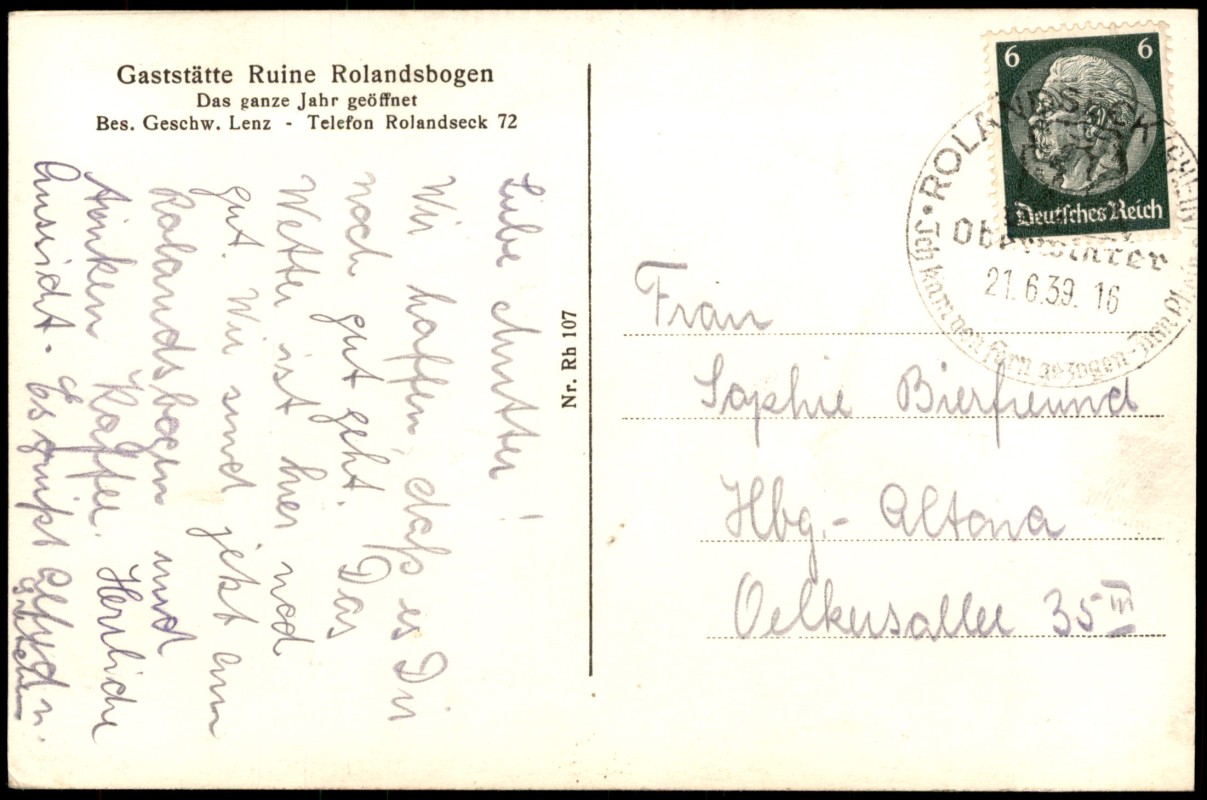 Gaststätte Ruine Rolandsbogen
Das ganze Jahr geöffnet
Bes. Geschw. Lenz - Telefon Rolandseck 72
Liebe Mutter!
Wir hoffen, daß es Dir
noch gut geht. Das
Wetter ist hier noch
gut. Wir sind jetzt am
Rolandsbogen und
trinken Kaffee. Herrliche
Aussicht. Es grüßt
Nr. Rh 107
6 6
Deutsches Reich
ROLANDSECK
Oberwinter
21.6.39. 16
Ich kam von fern gezogen
Frau
Sophie Bierfreund
Hbg.- Altona
Oelkersallee 35 III